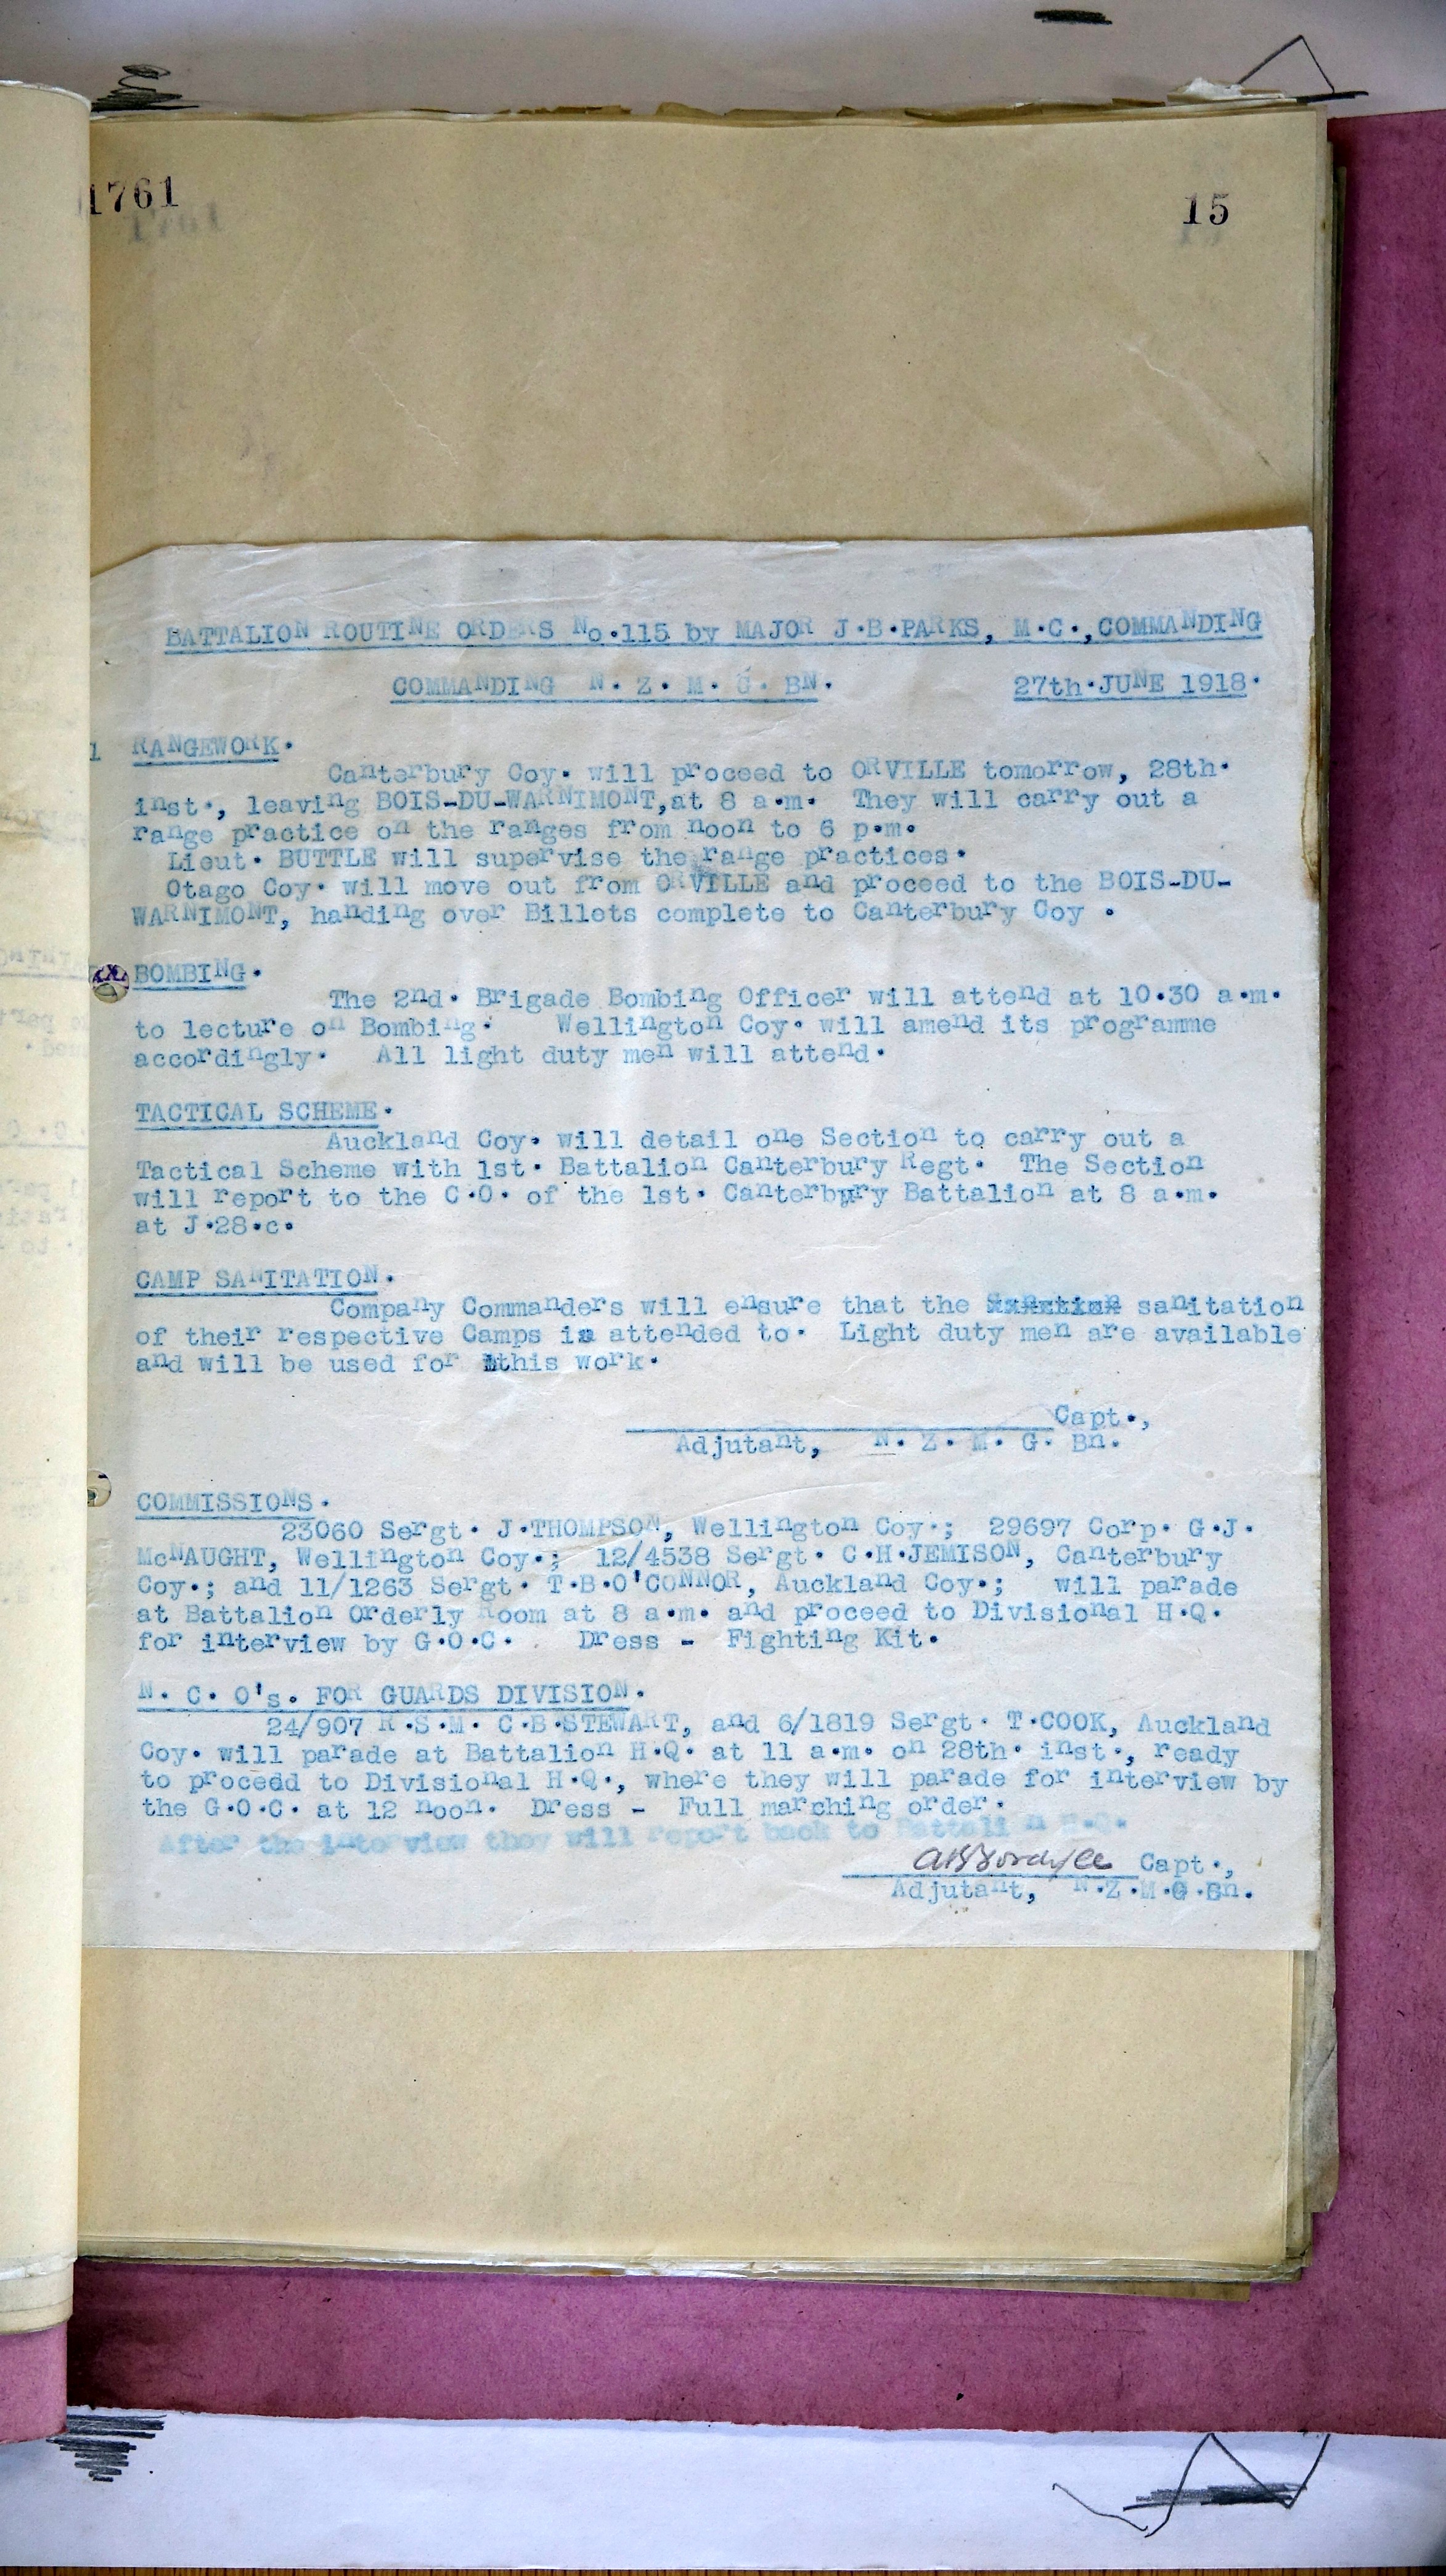 1761
15
BATTALION ROUTINE ORDERS No.115 by MAJOR J.B.PARKS, M.C.,COMMANDING
COMMANDING N. Z. M. G. BN. 27th.JUNE 1918.
1 RANGEWORK.
Canterbury Coy. will proceed to ORVILLE tomorrow, 28th.
inst., leaving BOIS-DU-WARNIMONT,at 8 a.m. They will carry out a
range practice on the ranges from noon to 6 p.m.
Lieut. BUTTLE will supervise the range practices.
Otago Coy. will move out from ORVILLE and proceed to the BOIS-DU-
WARNIMONT, handing over Billets complete to Canterbury Coy .
BOMBING.
The 2nd. Brigade Bombing Officer will attend at 10.30 a.m.
to lecture on Bombing. Wellington Coy. will amend its programme
accordingly. All light duty men will attend.
TACTICAL SCHEME.
Auckland Coy. will detail one Section to carry out a
Tactical Scheme with 1st. Battalion Canterbury Regt. The Section
will report to the C.O. of the 1st. Canterbury Battalion at 8 a.m.
at J.28.c.
CAMP SANITATION.
Company Commanders will ensure that the sanitation
of their respective Camps is attended to. Light duty men are available
and will be used for this work.
Capt.,
Adjutant, N. Z. M. G. Bn.
COMMISSIONS.
23060 Sergt. J.THOMPSON, Wellington Coy.; 29697 Corp. G.J.
McNAUGHT, Wellington Coy.; 12/4538 Sergt. C.H.JEMISON, Canterbury
Coy.; and 11/1263 Sergt. T.B.O'CONNOR, Auckland Coy.; will parade
at Battalion Orderly Room at 8 a.m. and proceed to Divisional H.Q.
for interview by G.O.C. Dress - Fighting Kit.
N. C. O's. FOR GUARDS DIVISION.
24/907 R.S.M. C.B.STEWART, and 6/1819 Sergt. T.COOK, Auckland
Coy. will parade at Battalion H.Q. at 11 a.m. on 28th. inst., ready
to proceed to Divisional H.Q., where they will parade for interview by
the G.O.C. at 12 noon. Dress - Full marching order.
After the interview they will report back to Battalion H.Q.
Capt.,
Adjutant, N.Z.M.G.Bn.